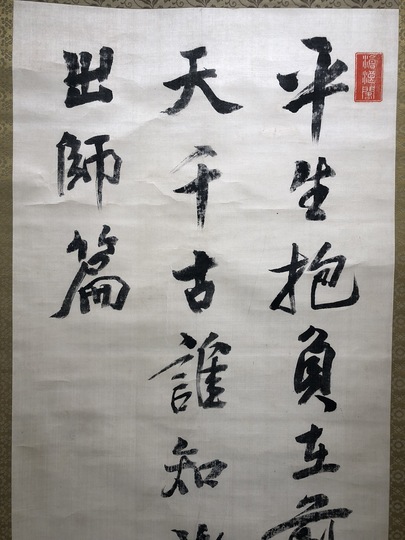 平生抱負在
天千古誰知
出師篇